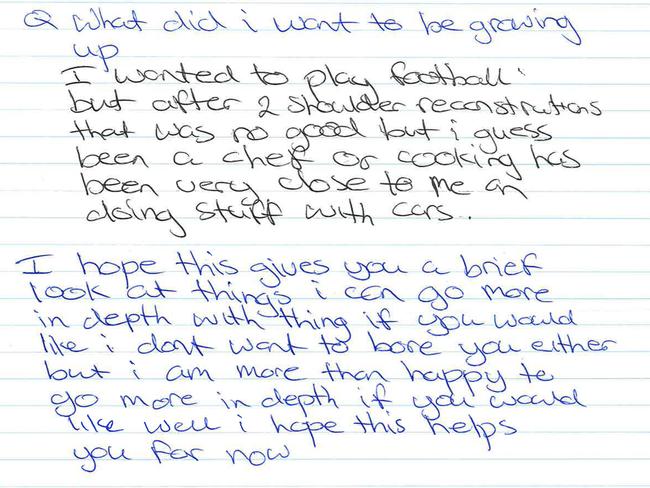 Q What did i want to be growing
up
I wanted to play football.
but after 2 shoulder reconstrutions
that was no good but i guess
been a chef or cooking has
been very close to me an
doing stuff with cars..
I hope this gives you a brief
look at things i can go more
in depth with thing if you would
like i dont want to bore you either
but i am more than happy to
go more in depth if you would
like well i hope this helps
you for now